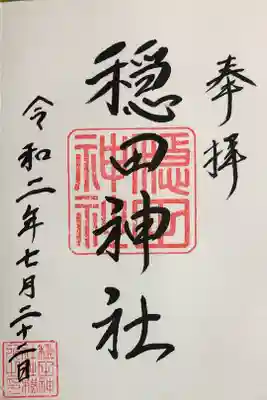 奉拝
穏田神社
令和二年七月二十二日
穏田神社